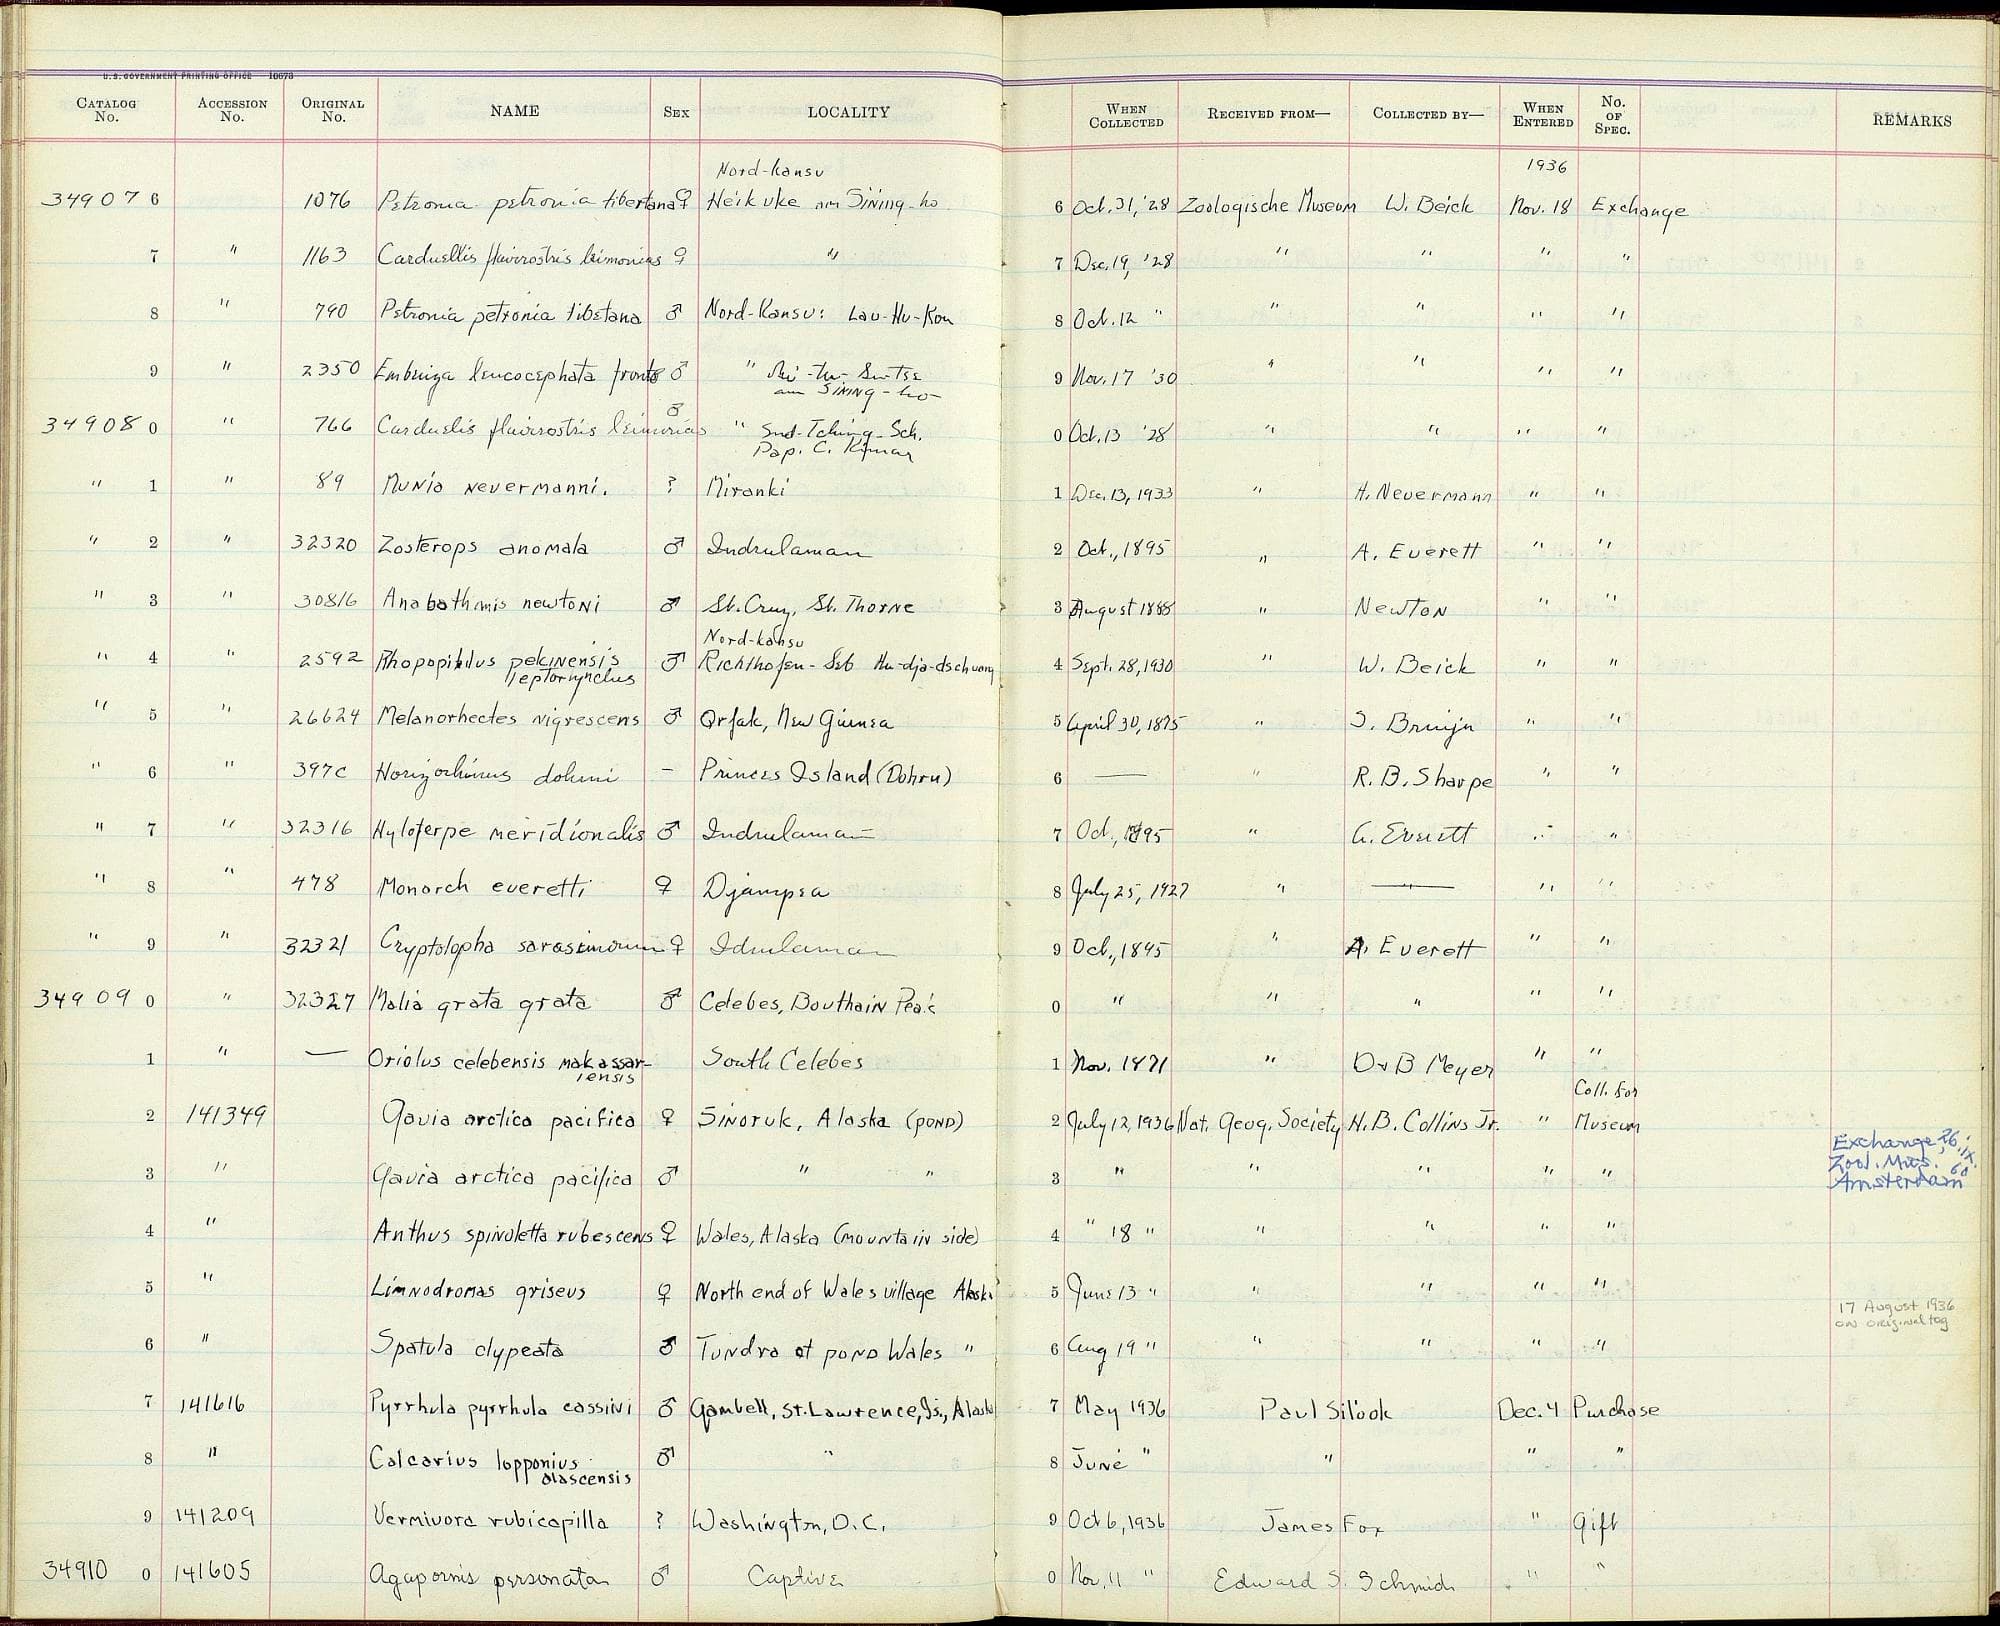 U.S. GOVERNMENT PRINTING OFFICE 10673
CATALOG No. ACCESSION No. ORIGINAL No. NAME SEX LOCALITY WHEN COLLECTED RECEIVED FROM— COLLECTED BY— WHEN ENTERED No. OF SPEC. REMARKS
Nord-Kansu 1936
34907 6 1076 Petronia petronia tibetana ♀ Heikuke am Sining-ho 6 Oct. 31, '28 Zoologische Museum W. Beick Nov. 18 Exchange
7 " 1163 Carduellis flavirostris leimonias ♀ " 7 Dec. 19, '28 " " " "
8 " 790 Petronia petronia tibetana ♂ Nord-Kansu: Lau-Hu-Kou 8 Oct. 12 " " " " "
9 " 2350 Emberiza leucocephala fronto ♂ " 9 Nov. 17 '30 " " " "
am Sining-ho
34908 0 " 766 Carduelis flavirostris leimonias ♂ " Snd-Tching-Sch. 0 Oct. 13 '28 " " " "
Pap. C.
" 1 " 89 Munia nevermanni. ? Mironki 1 Dec. 13, 1933 " H. Nevermann " "
" 2 " 32320 Zosterops anomala ♂ Indrulaman 2 Oct., 1895 " A. Everett " "
" 3 " 30816 Anabathmis newtoni ♂ St. Cruz, St. Thorne 3 August 1888 " Newton " "
Nord-kansu
" 4 " 2592 Rhopophilus pekinensis ♂ Richthofen-Geb Hu-dja-dschuang 4 Sept. 28, 1930 " W. Beick " "
leptorhynchus
" 5 " 26624 Melanorhectes nigrescens ♂ Arfak, New Guinea 5 April 30, 1875 " J. Bruijn " "
" 6 " 397c Horizorhinus dohrni – Princes Island (Dohrn) 6 — " R. B. Sharpe " "
" 7 " 32316 Hyloterpe meridionalis ♂ Indrulaman 7 Oct., 1895 " A. Everett " "
" 8 " 478 Monarch everetti ♀ Djampea 8 July 25, 1927 " — " "
" 9 " 32321 Cryptolopha sarasinorum ♀ Idrulaman 9 Oct., 1895 " A. Everett " "
34909 0 " 32327 Malia grata grata ♂ Celebes, Bouthain Peak 0 " " " " "
1 " — Oriolus celebensis makassar- South Celebes 1 Nov. 1871 " Dr B Meyer " "
iensis Coll. for
2 141349 Gavia arctica pacifica ♀ Sinoruk, Alaska (pond) 2 July 12, 1936 Nat. Geog. Society H. B. Collins Jr. " Museum
3 " Gavia arctica pacifica ♂ " " 3 " " " " " Exchange, 26.IX.60
Zool. Mus.
Amsterdam
4 " Anthus spinoletta rubescens ♀ Wales, Alaska (mountain side) 4 " 18 " " " " "
5 " Limnodromas griseus ♀ North end of Wales village Alaska 5 June 13 " " " " "
17 August 1936
on original tag
6 " Spatula clypeata ♂ Tundra at pond Wales " 6 Aug 19 " " " " "
7 141616 Pyrrhula pyrrhula cassini ♂ Gambell, St. Lawrence, Is., Alaska 7 May 1936 Paul Silook Dec. 4 Purchase
8 " Calcarius lapponius ♂ " 8 June " " " "
alascensis
9 141209 Vermivora rubicapilla ? Washington, D.C. 9 Oct 6, 1936 James Fox " Gift
34910 0 141605 Agapornis personata ♂ Captive 0 Nov. 11 " Edward S. Schmid " "